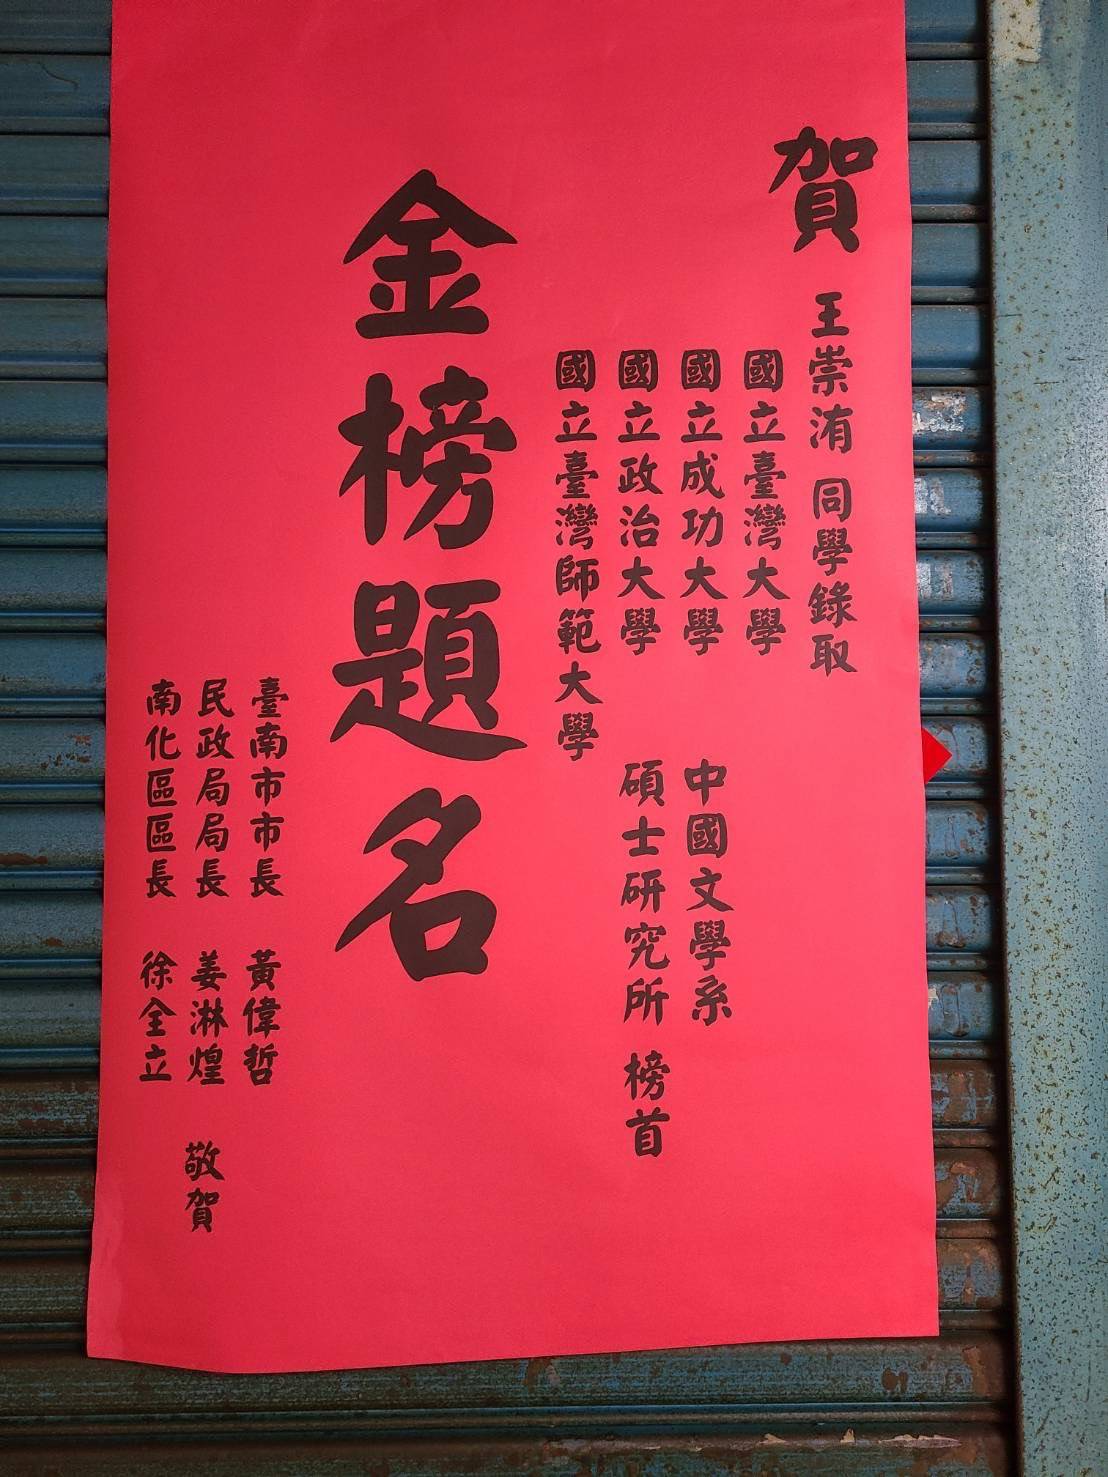 賀
王崇洧 同學錄取
國立臺灣大學
國立成功大學
國立政治大學
國立臺灣師範大學
中國文學系
碩士研究所 榜首
金榜題名
臺南市市長 黃偉哲
民政局局長 姜淋煌
南化區區長 徐全立
敬賀